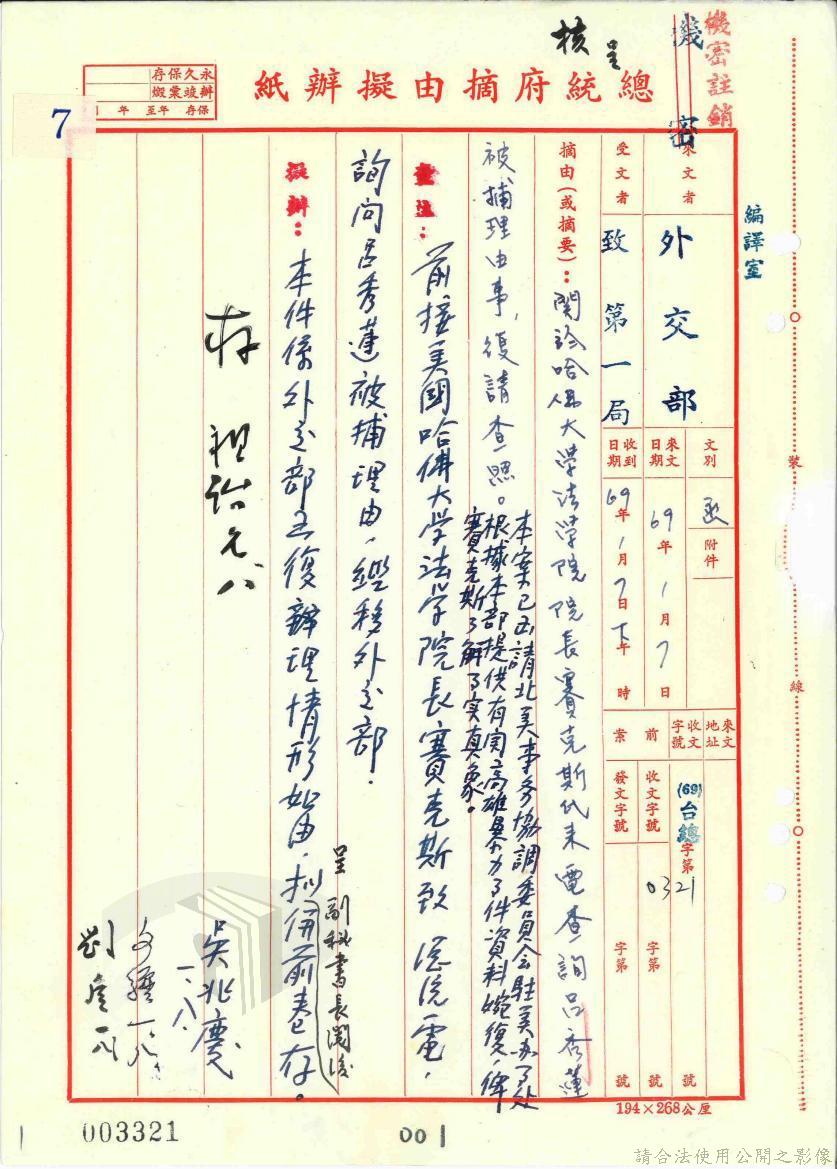 機密註銷
機密
呈
核
總統府摘由擬辦紙
永久保存
辦竣彙燬
保存 年至 年
7
編譯室
來文者
外交部
受文者
致第一局
文別
函
附件
來文日期
69年1月7日
收到日期
69年1月7日下午 時
來文地址
收文字號
(69)台總字第0321號
前案
收文字號
字第 號
發文字號
字第 號
摘由(或摘要):關於哈佛大學法學院院長賽克斯代來電查詢呂秀蓮
被捕理由事,復請查照。
本案已函請北美事務協調委員會駐美辦事處
根據本部提供有關高雄暴力事件資料婉復,俾
賽克斯了解事實真象。
查註:前接美國哈佛大学法学院長賽克斯致 總統電,
詢問呂秀蓮被捕理由,經移外交部。
擬辦:本件係外交部函復辦理情形如由,擬併前卷存。
呈副秘書長閱後
存
祖詒 元.八
吳兆慶
一.八.
一.八.
劉
一.八
裝
線
194×268公厘
003321
001
請合法使用公開之影像